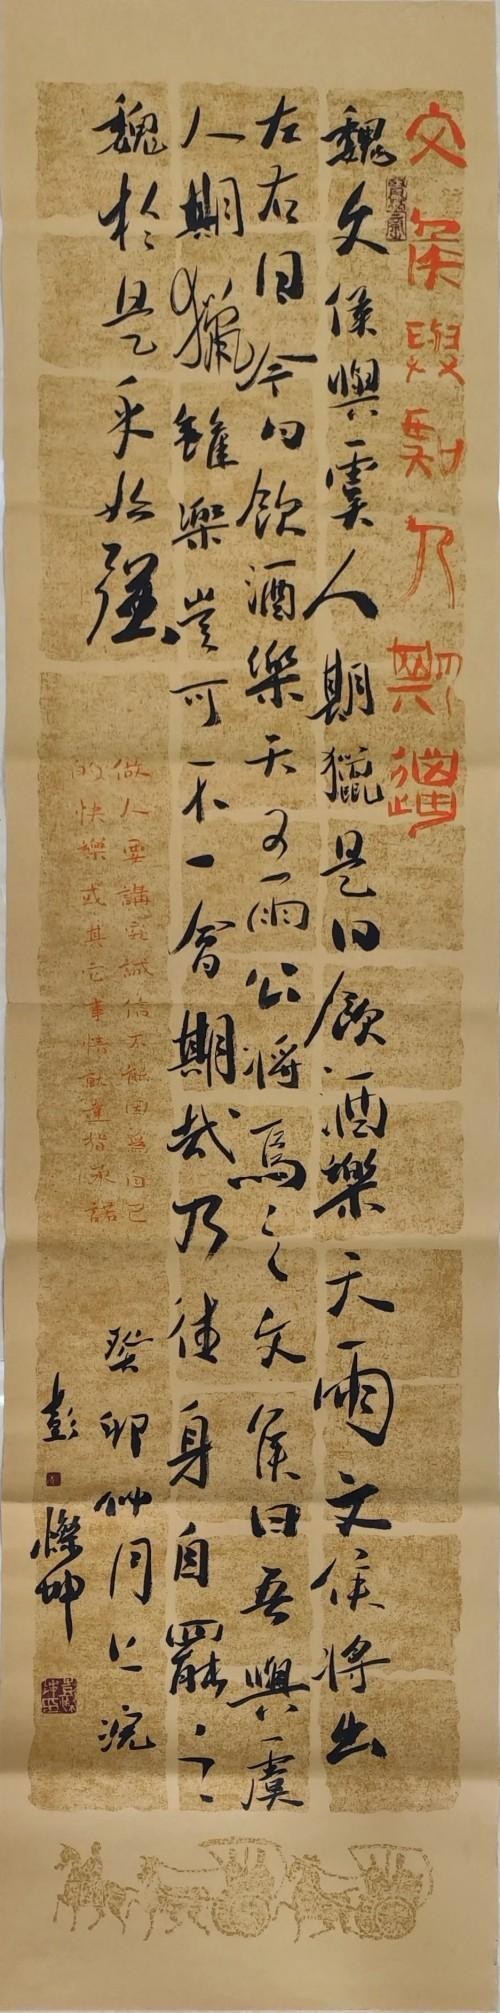 文侯與虞人期獵
魏文侯與虞人期獵是日飲酒樂天雨文侯將出
左右曰今日飲酒樂天又雨公將焉之文侯曰吾與虞
人期獵雖樂豈可不一會期哉乃往身自罷之
魏於是乎始強
做人要講究誠信不能因為自己
的快樂或其它事情就違背承諾
癸卯仲月上浣
彭燦坤